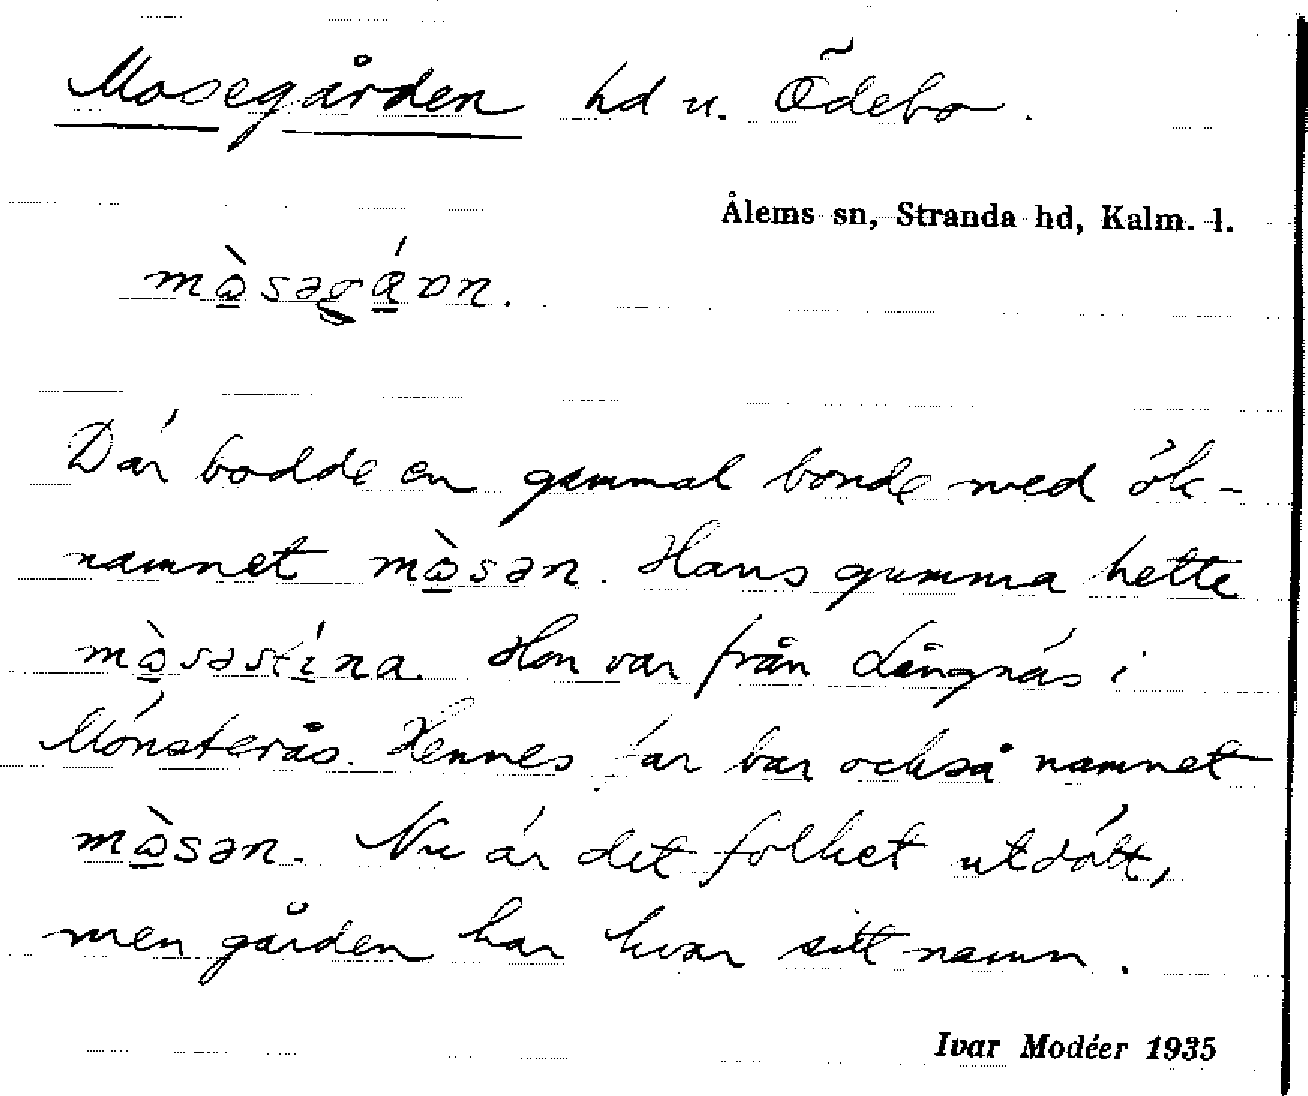 Mosegården hd u. Ödebo.
Ålems sn, Stranda hd, Kalm. l.
mɷ̀səgán.
Där bodde en gammal bonde med ök-
namnet mɷ̀sən. Hans gumma hette
mɷ̀səstína. Hon var från Långnäs i
Mönsterås. Hennes far bar också namnet
mɷ̀sən. Nu är det folket utdött,
men gården har kvar sitt namn.
Ivar Modéer 1935